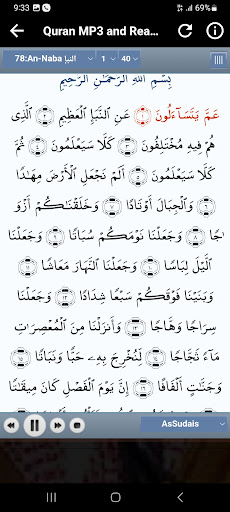 9:33
69%
Quran MP3 and Rea...
78:An-Naba النبإ 1 40
بِسْمِ اللَّهِ الرَّحْمَٰنِ الرَّحِيمِ
عَمَّ يَتَسَآءَلُونَ ١ عَنِ النَّبَإِ الْعَظِيمِ ٢ الَّذِى
هُمْ فِيهِ مُخْتَلِفُونَ ٣ كَلَّا سَيَعْلَمُونَ ٤ ثُمَّ
كَلَّا سَيَعْلَمُونَ ٥ أَلَمْ نَجْعَلِ الْأَرْضَ مِهَٰدًا
٦ وَالْجِبَالَ أَوْتَادًا ٧ وَخَلَقْنَٰكُمْ أَزْوَٰ
جًا ٨ وَجَعَلْنَا نَوْمَكُمْ سُبَاتًا ٩ وَجَعَلْنَا
الَّيْلَ لِبَاسًا ١٠ وَجَعَلْنَا النَّهَارَ مَعَاشًا ١١
وَبَنَيْنَا فَوْقَكُمْ سَبْعًا شِدَادًا ١٢ وَجَعَلْنَا
سِرَاجًا وَهَّاجًا ١٣ وَأَنزَلْنَا مِنَ الْمُعْصِرَٰتِ
مَآءً ثَجَّاجًا ١٤ لِّنُخْرِجَ بِهِۦ حَبًّا وَنَبَاتًا ١٥
وَجَنَّٰتٍ أَلْفَافًا ١٦ إِنَّ يَوْمَ الْفَصْلِ كَانَ مِيقَٰتًا
AsSudais